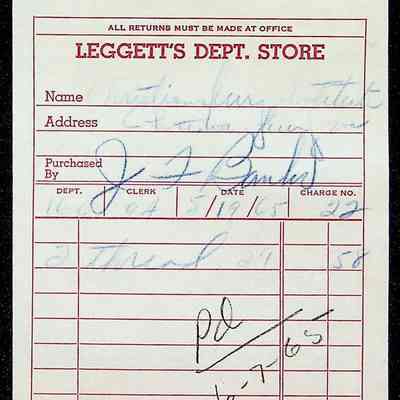 ALL RETURNS MUST BE MADE AT OFFICE
LEGGETT'S DEPT. STORE
Name Christiansburg Institute
Address
Purchased By J F Banks
DEPT. CLERK DATE CHARGE NO.
5/19/65 22
2 Thread 29 58
Pd
6-7-65